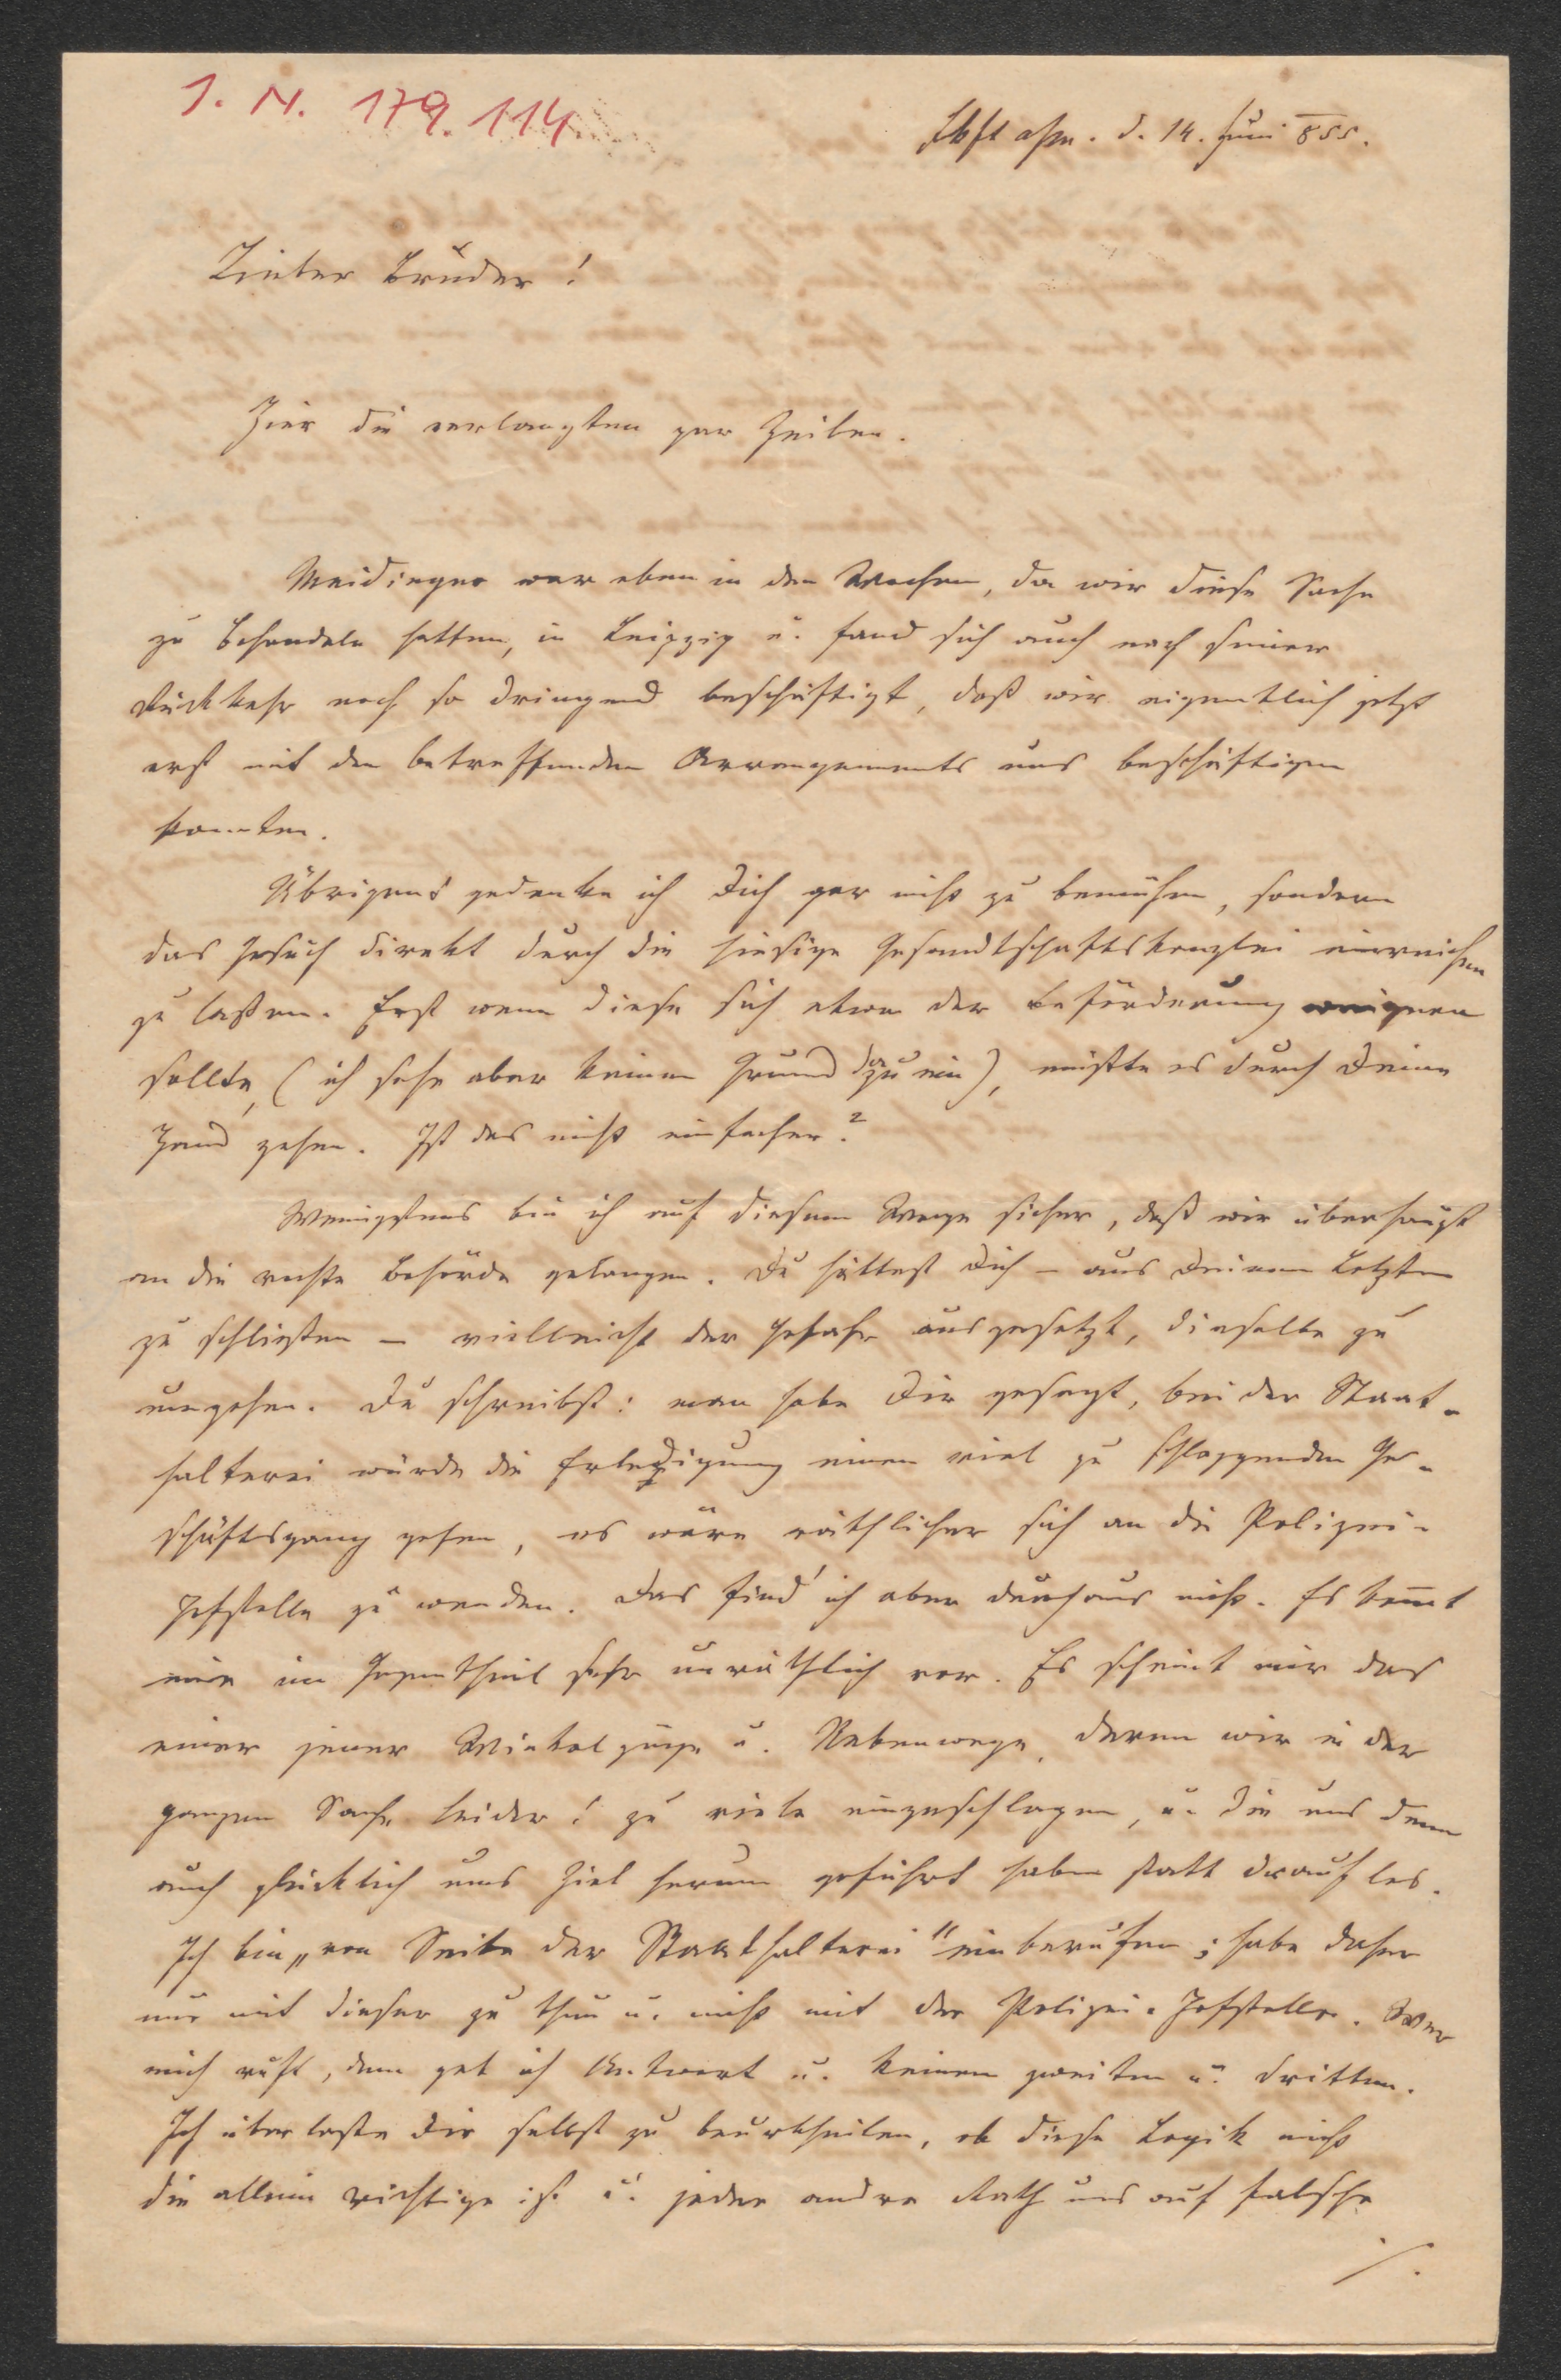 I. N. 179.114
d. 14. Juni 855.
Lieber Bruder!
Hier die verlangten par Zeilen.
Meidinger war eben in den Wochen, da wir diese Sache
zu behandeln hatten, in Leipzig u. fand sich auch nach seiner
Rückkehr noch so dringend beschäftigt, daß wir eigentlich jetzt
erst mit den betreffenden Arrangements uns beschäftigen
konnten.
Übrigens gedenke ich Dich gar nicht zu bemühen, sondern
das Gesuch direkt durch die hiesige Gesandtschaftskanzlei einreichen
zu laßen. Erst wenn diese sich etwa der Beförderung weigern
sollte, (ich sehe aber keinen Grund dazu ein), müßte es durch Deine
Hand gehen. Ist das nicht einfacher?
Wenigstens bin ich auf diesem Wege sicher, daß wir überhaupt
an die rechte Behörde gelangen. Du hättest Dich – aus Deinem Letzten
zu schließen – vielleicht der Gefahr ausgesetzt, dieselbe zu
umgehen. Du schreibst: man habe Dir gesagt, bei der Statt-
halterei würde die Erledigung einen viel zu schleppenden Ge-
schäftsgang gehen, es wäre räthlicher sich an die Polizei-
Hofstelle zu wenden. Das find' ich aber durchaus nicht. Es kommt
mir im Gegentheil sehr unräthlich vor. Es scheint mir das
einer jener Winkelzüge u. Nebenwege, deren wir in der
ganzen Sache leider! zu viele eingeschlagen, u. die uns denn
auch glücklich ums Ziel herum geführt haben statt drauf los.
Ich bin „von Seite der Statthalterei" einberufen; habe daher
nur mit dieser zu thun u. nicht mit der Polizei-Hofstelle. Wer
mich ruft, dem geb ich Antwort u. keinem zweiten u. dritten.
Ich überlaße Dir selbst zu beurtheilen, ob diese Logik nicht
die allein richtige ist u. jeder andre Rath uns auf falsche
./.